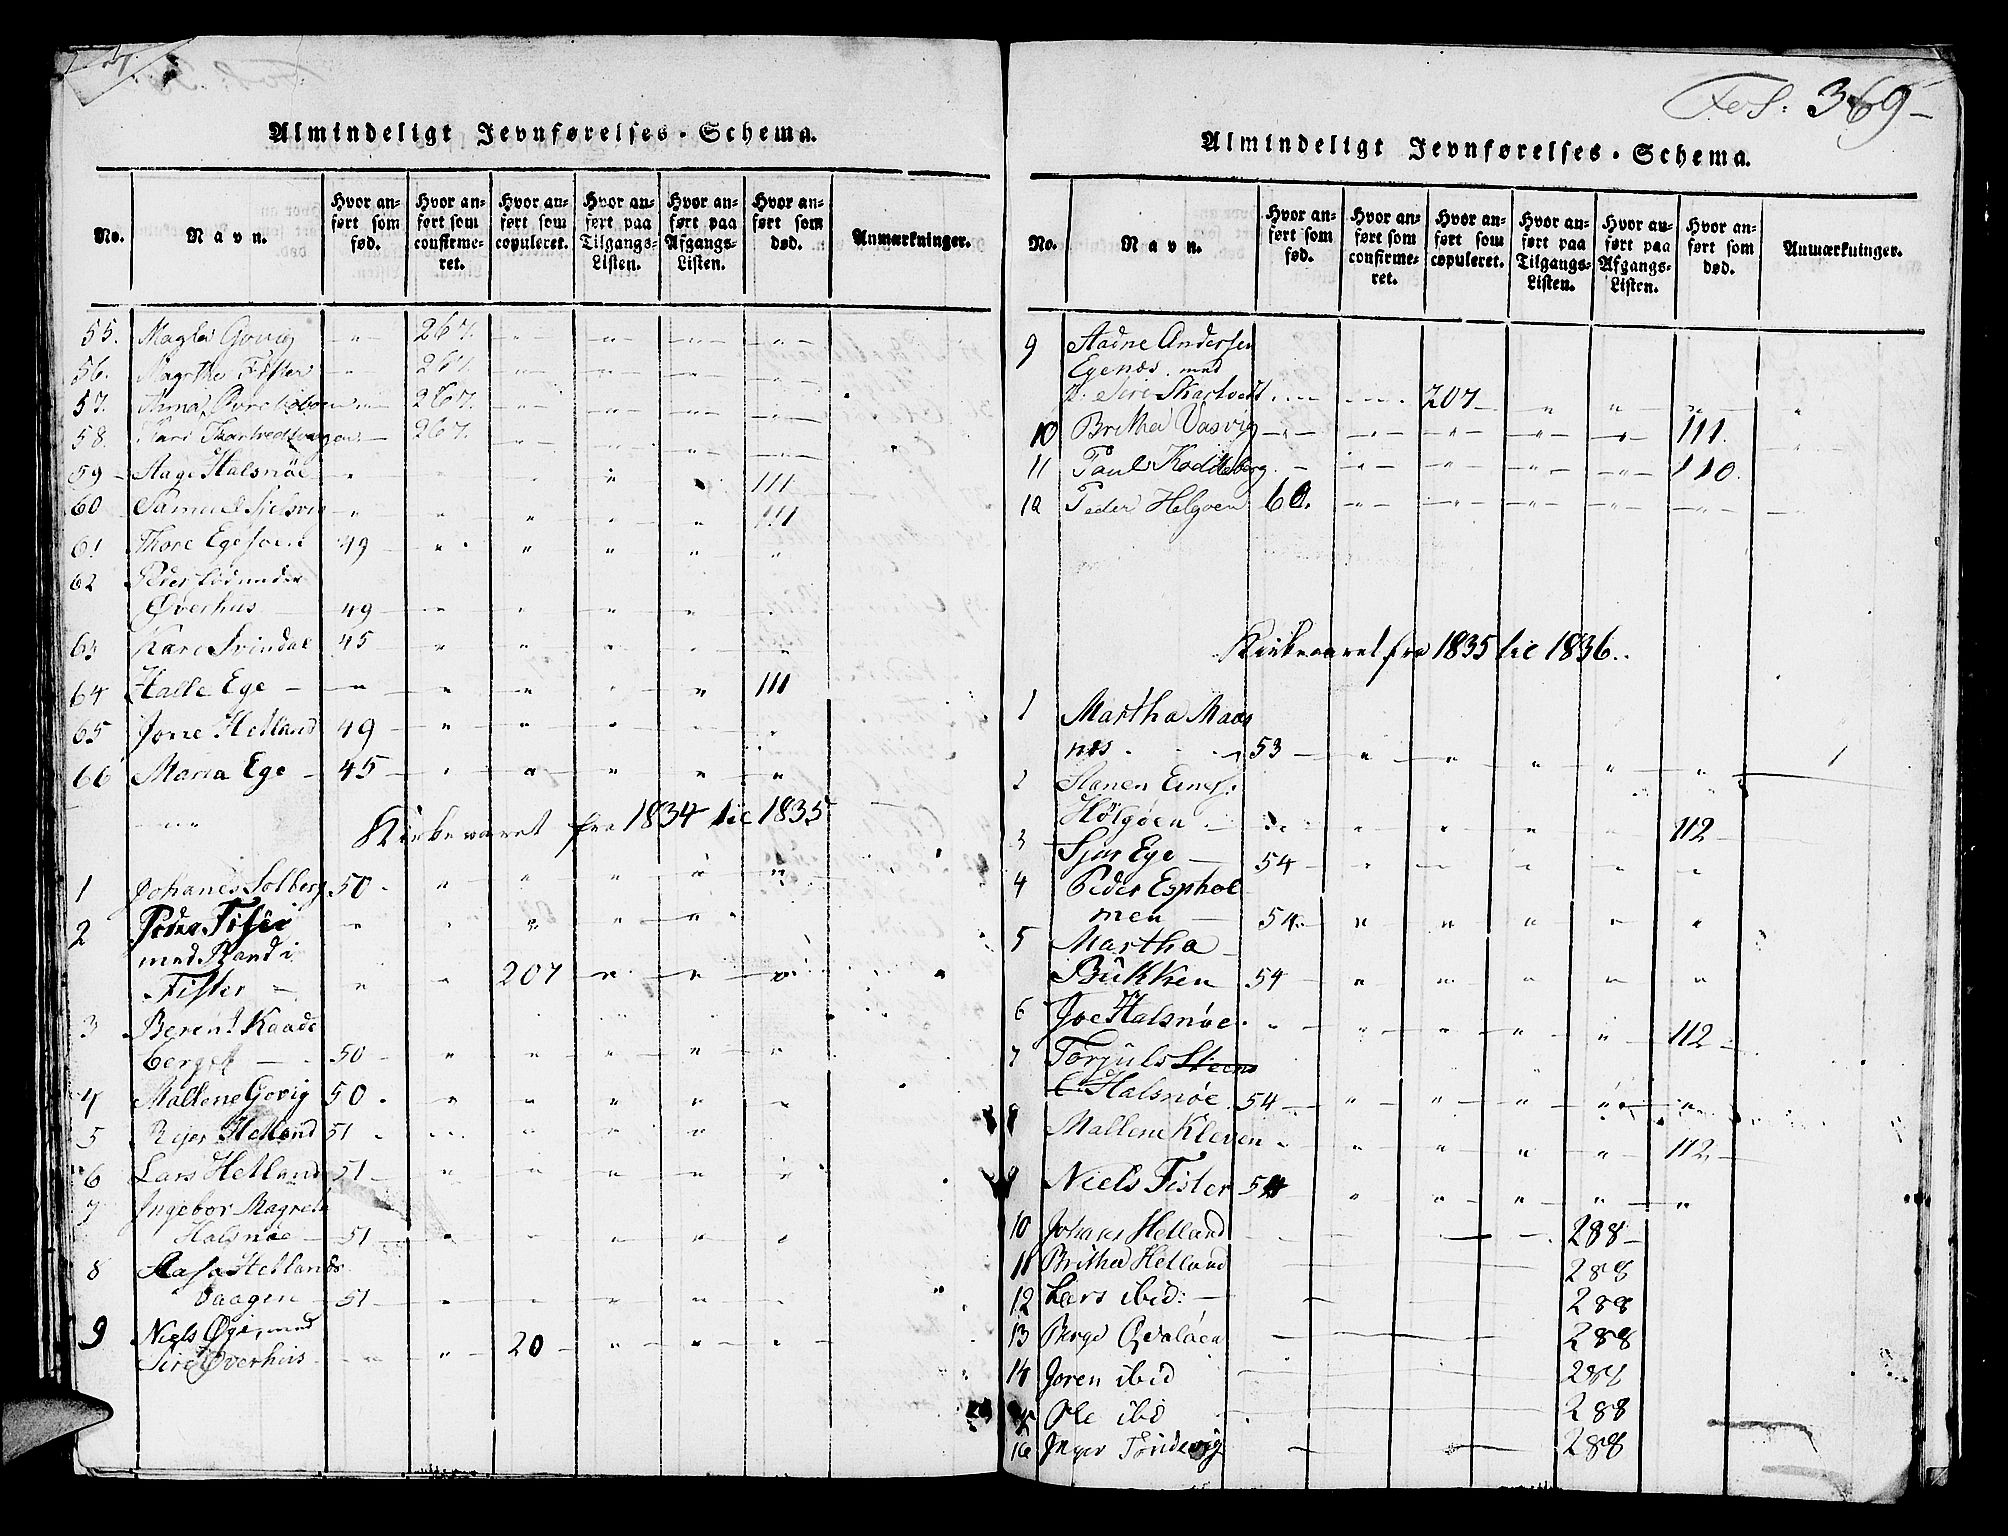 Almindeligt Jevnførelses-Schema.
No. | Navn. | Hvor anført som fød. | Hvor anført som confirmeret. | Hvor anført som copuleret. | Hvor anført paa Tilgangs-Listen. | Hvor anført paa Afgangs-Listen. | Hvor anført som død. | Anmærkninger.
55. Govig 267.
56. Magrtha Fister 267.
57. Anna 267.
58 Kari 267.
59 Aage Halsnöe 111
60 Samuel 111
61 Thore 49
62 Peder
Øverhus 49
63 Kari Svindal 45
64 Halle Ege 111
65 Jone Helland 49
66 Maria Ege 45
Kirkeaaret fra 1834 til 1835
1 Johanes Solberg 50
2 Peder
med Randi
Fister 207
3 Berent Kaade
berget 50
4 Mallene Govig 50
5 Rejer Helland 51
6 Lars Helland 51
7 Ingebor Magrete
Halsnøe 51
8 Hellands
Vaagen 51
9 Niels Øye, med
Siri Øverhus 20
Fol: 369
Almindeligt Jevnførelses-Schema.
No. | Navn. | Hvor anført som fød. | Hvor anført som confirmeret. | Hvor anført som copuleret. | Hvor anført paa Tilgangs-Listen. | Hvor anført paa Afgangs-Listen. | Hvor anført som død. | Anmærkninger.
9 Aadne Andersen
Egenæs. med
Siri Skartvedt 207
10 Britha Vasvig 111.
11 Paul 110.
12 Peder Helgøen 60.
Kirkeaaret fra 1835 til 1836.
1 Martha Maas
næs 53
2
Hølgøen 112
3 Sjur Ege 54
4 Peder Esphol
men 54
5 Martha
Bukken 54
6 Joe Halsnøe 112
7 Torjuls
Halsnøe 54
8 Mallene Kleven 112
9 Niels Fister 54
10 Johans Helland 288
11 Britha Helland 288
12 Lars ibid: 288
13 288
14 Joren ibid 288
15 Ole ibd 288
16 Inger 288